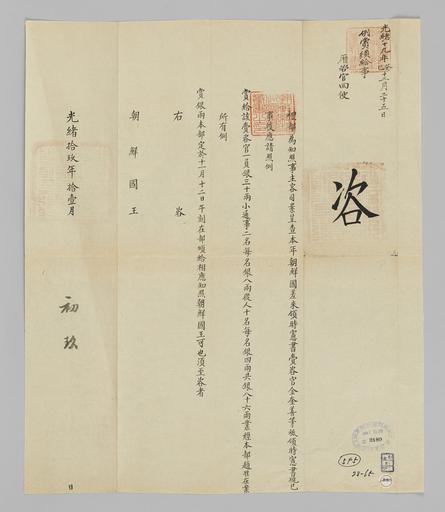 光緒十九年癸巳十二月二十五日
例賞頒給事
曆咨官回便
咨
禮部爲知照事主客司案呈查本年朝鮮國差來領時憲書賫咨官金奎善等祗領時憲書現已
事竣應請照例
賞給該賫咨官一員銀三十兩小通事二名每名銀八兩從人十名每名銀四兩共銀八十六兩業經本部題准在案
所有例
賞銀兩本部定於十一月十二日午刻在部頒給相應知照朝鮮國王可也須至咨者
右咨
朝鮮國王
光緒拾玖年拾壹月
初玖
595
28-65